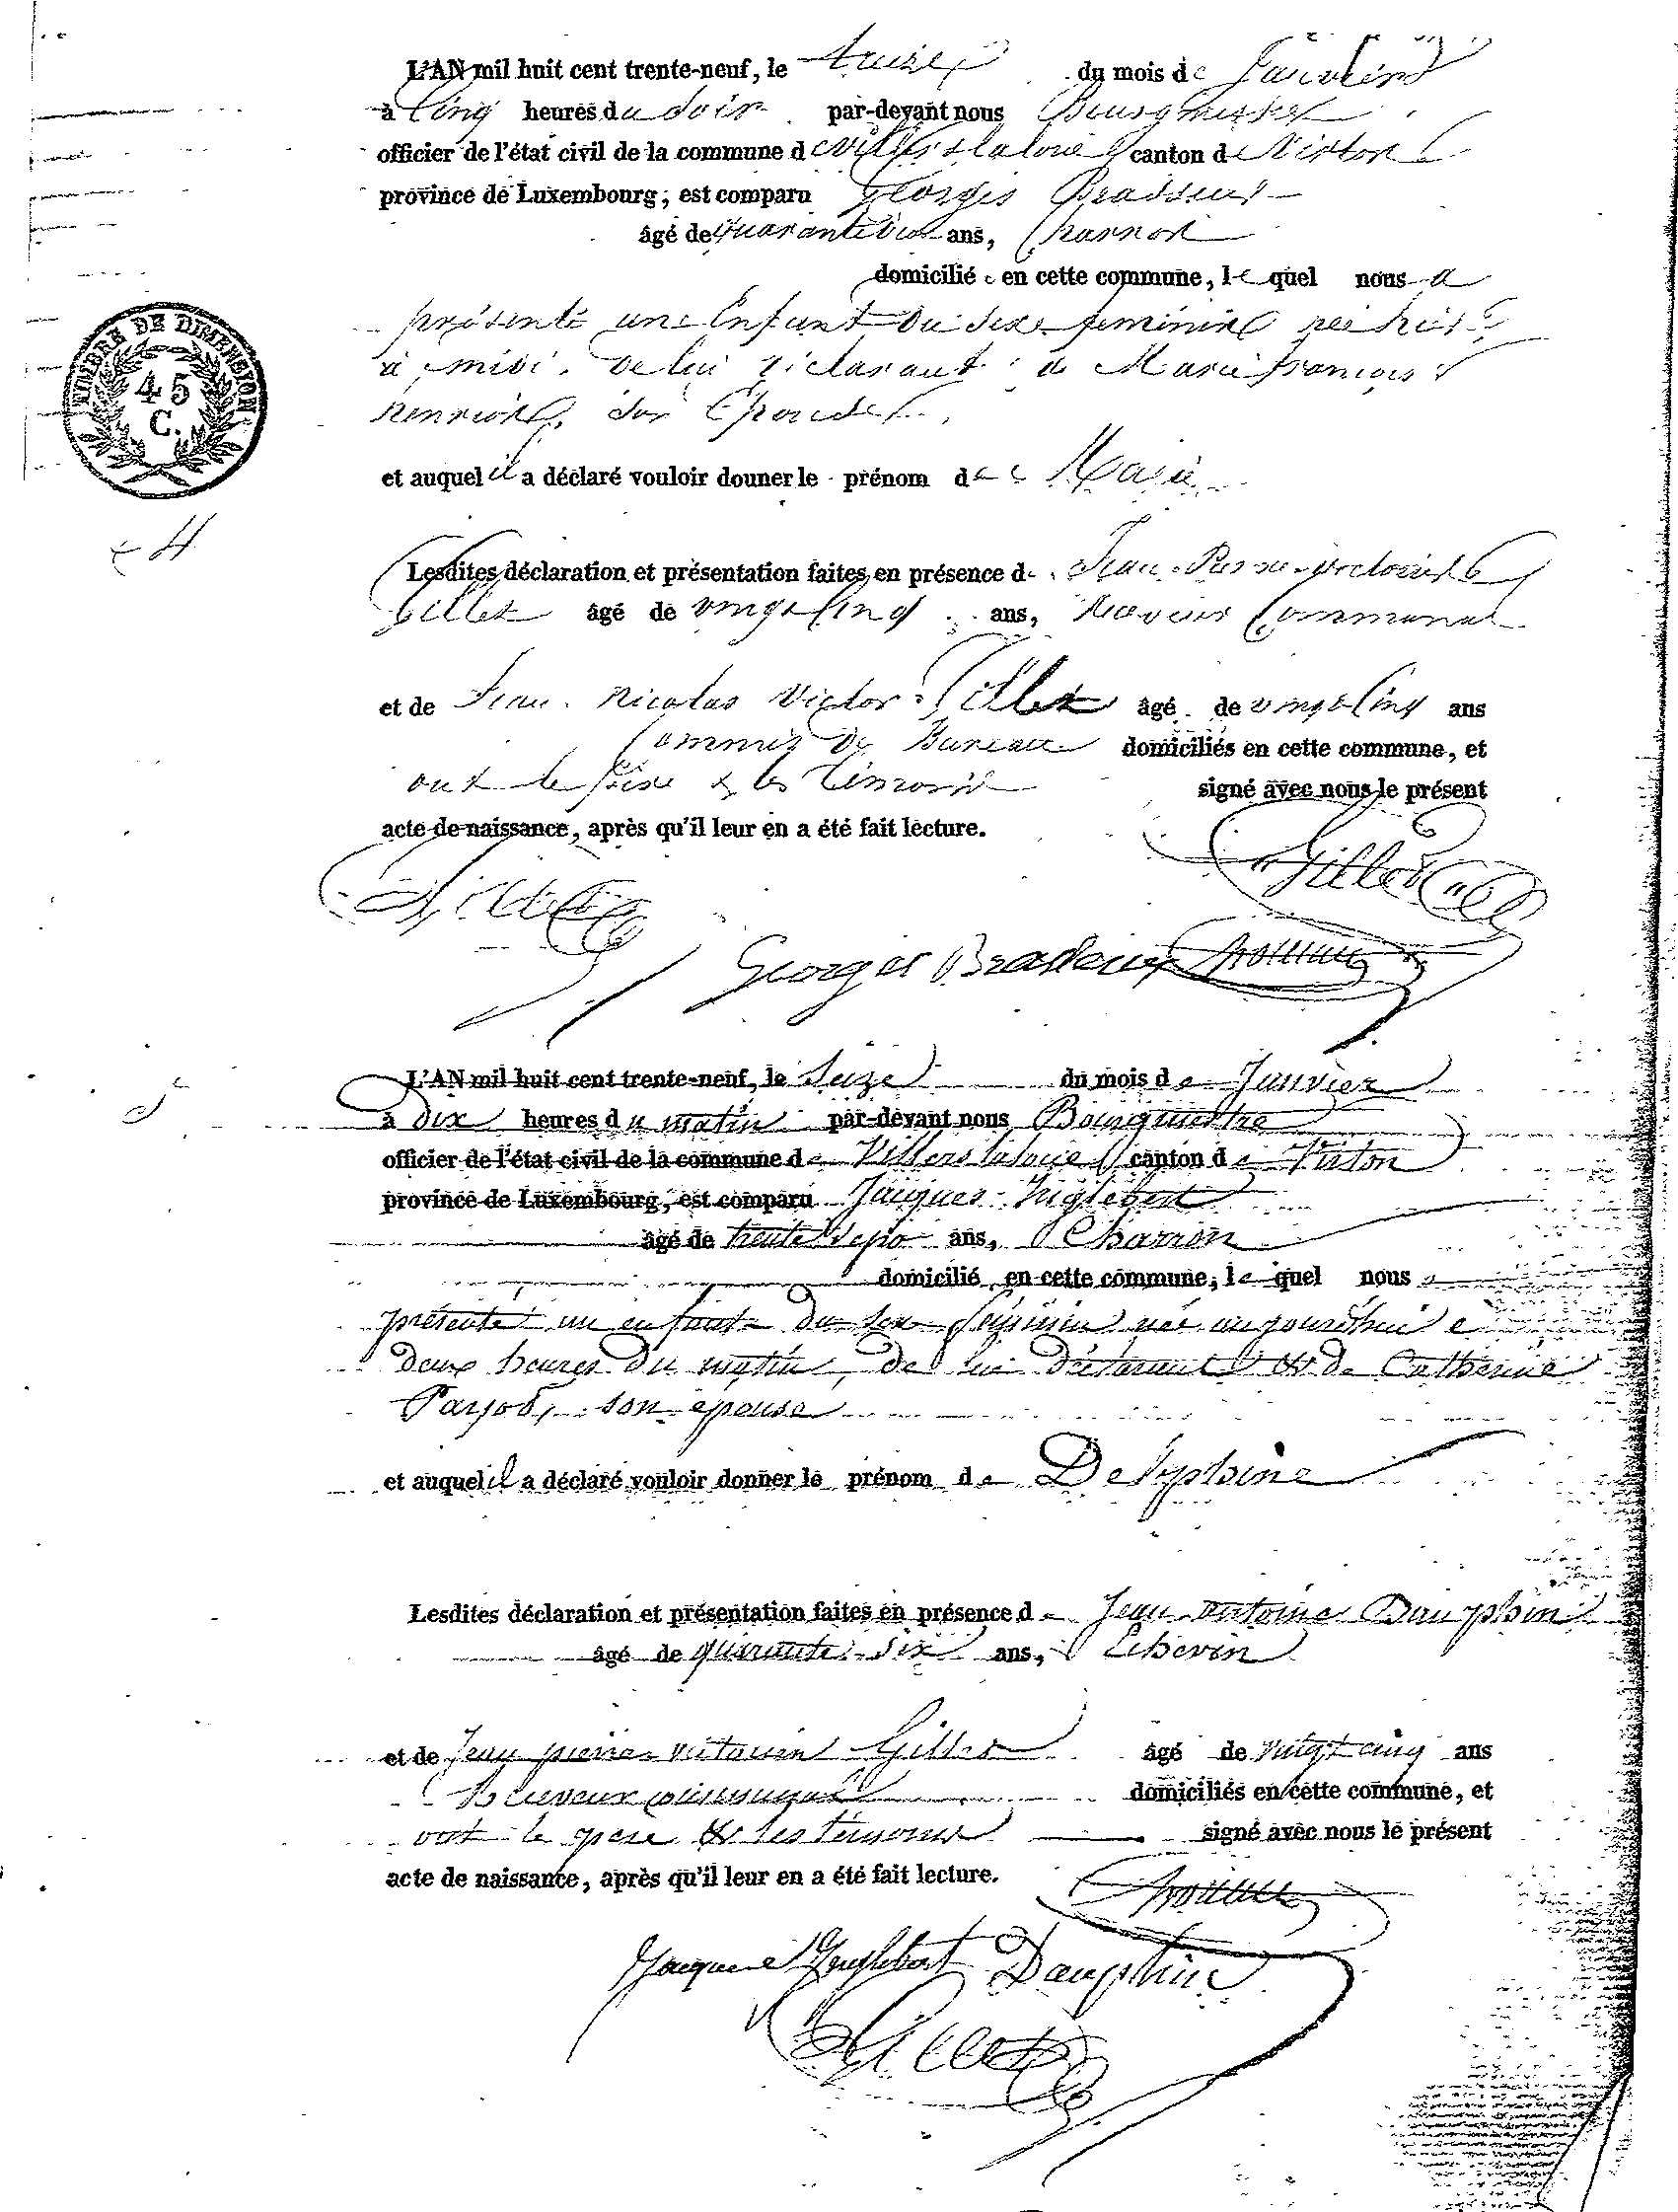 L'AN mil huit cent trente-neuf, le treize du mois de Janvier
à Cinq heures du Soir par-devant nous Bourgmestre
officier de l'état civil de la commune de Villers laloue canton de Virton
province de Luxembourg, est comparu Georges Brasseur
âgé de quarante ans, Charron
domicilié en cette commune, lequel nous a
présenté un Enfant du Sexe feminin née hier
à midi. de lui déclarant & de Marie françoise
henrion, son Epouse
TIMBRE DE DIMENSION
45
C.
et auquel il a déclaré vouloir donner le prénom de Marie
4
Lesdites déclaration et présentation faites en présence de Jean-Pierre-victorin
Gillet âgé de vingt Cinq ans, Receveur Communal
et de Jean Nicolas Victor Gillet âgé de vingt Cinq ans
Commis de Bureau domiciliés en cette commune, et
ont le père & les témoins signé avec nous le présent
acte de naissance, après qu'il leur en a été fait lecture.
Gillet
Gillet
Georges Brasseur
L'AN mil huit cent trente-neuf, le Seize du mois de Janvier
5
à dix heures du matin par-devant nous Bourgmestre
officier de l'état civil de la commune de Villers laloue canton de Virton
province de Luxembourg, est comparu Jacques Inglebert
âgé de trente sept ans, Charron
domicilié en cette commune, lequel nous a
présenté un enfant du sexe féminin née aujourd'hui à
deux heures du matin, de lui déclarant & de Catherine
Parjot, son épouse
et auquel il a déclaré vouloir donner le prénom de Delphine
Lesdites déclaration et présentation faites en présence de Jean-antoine Dauphin
âgé de quarante-six ans, Echevin
et de Jean pierre victorin Gillet âgé de vingt cinq ans
Receveur communal domiciliés en cette commune, et
ont le père & les témoins signé avec nous le présent
acte de naissance, après qu'il leur en a été fait lecture.
Jacques Inglebert Dauphin
Gillet